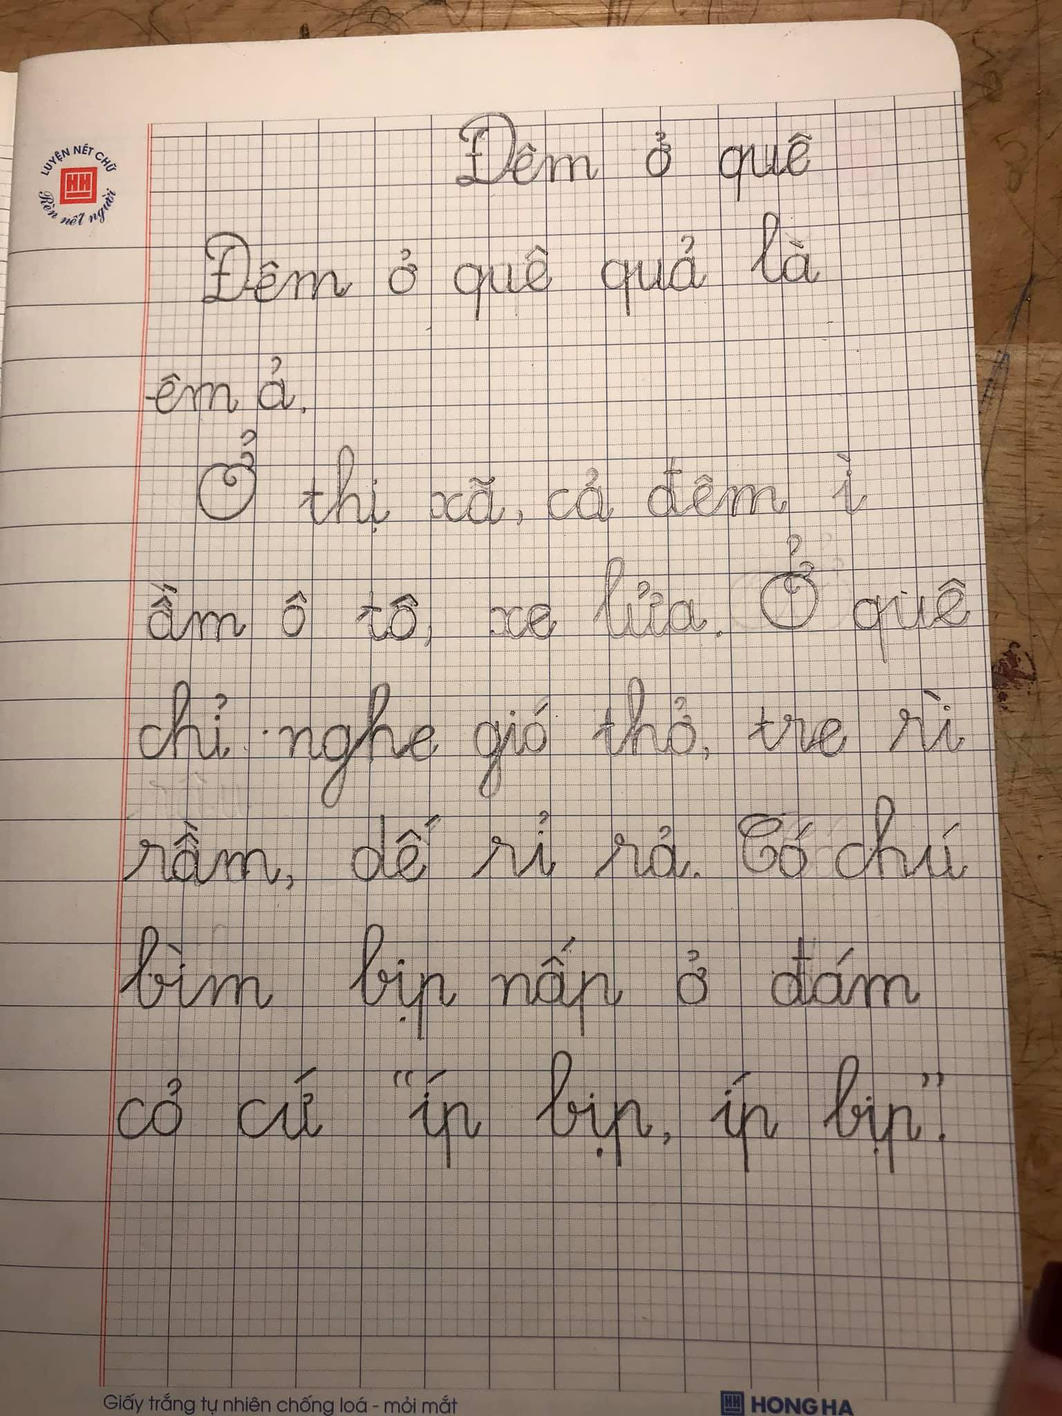 LUYỆN NÉT CHỮ
Rèn nết người
Đêm ở quê
Đêm ở quê quả là
êm ả.
Ở thị xã, cả đêm ì
ầm ô tô, xe lửa. Ở quê
chỉ nghe gió thở, tre rì
rầm, dế rỉ rả. Có chú
bìm bịp nấp ở đám
cỏ cứ "íp bịp, íp bịp".
Giấy trắng tự nhiên chống loá - mỏi mắt
HH HONG HA